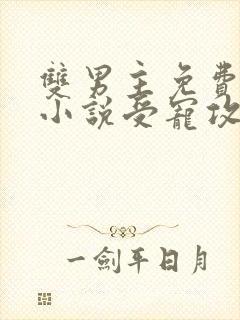 雙男主免費
小說受寵攻
一劍平日月